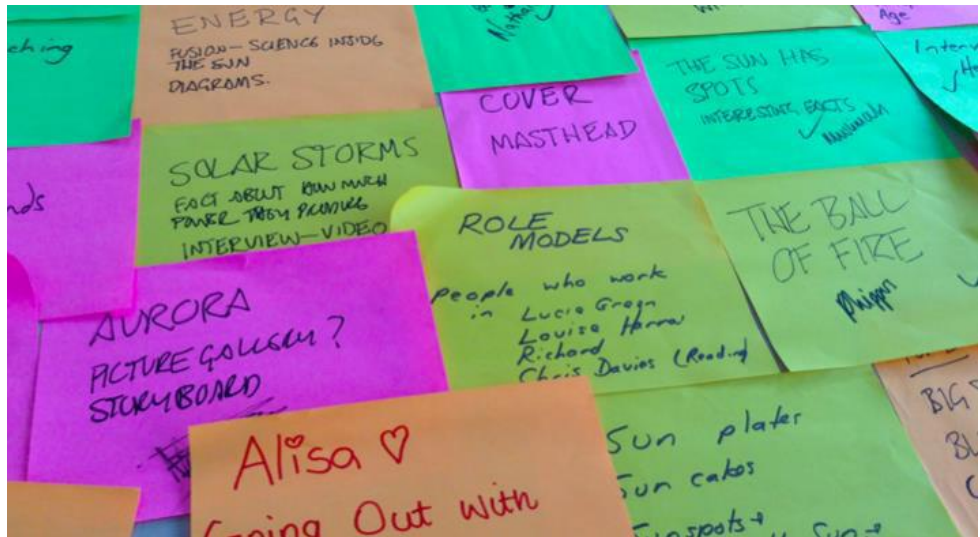 ching
ENERGY
FUSION - SCIENCE INSIDE
THE SUN
DIAGRAMS.
COVER
MASTHEAD
THE SUN HAS
SPOTS
INTERESTING FACTS
Age
Interv
nds
SOLAR STORMS
FACT ABOUT HOW MUCH
POWER THEY PRODUCE
INTERVIEW - VIDEO
ROLE
MODELS
People who work
in Lucie Green
Louise Harra
Richard
Chris Davies (Reading)
THE BALL
OF FIRE
AURORA
PICTURE GALLERY?
STORYBOARD
Alisa ♡
Going Out With
Sun plates
Sun cakes
Sunspots →
Sun →
BIG